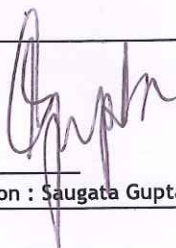 Gupta
on : Saugata Gupta